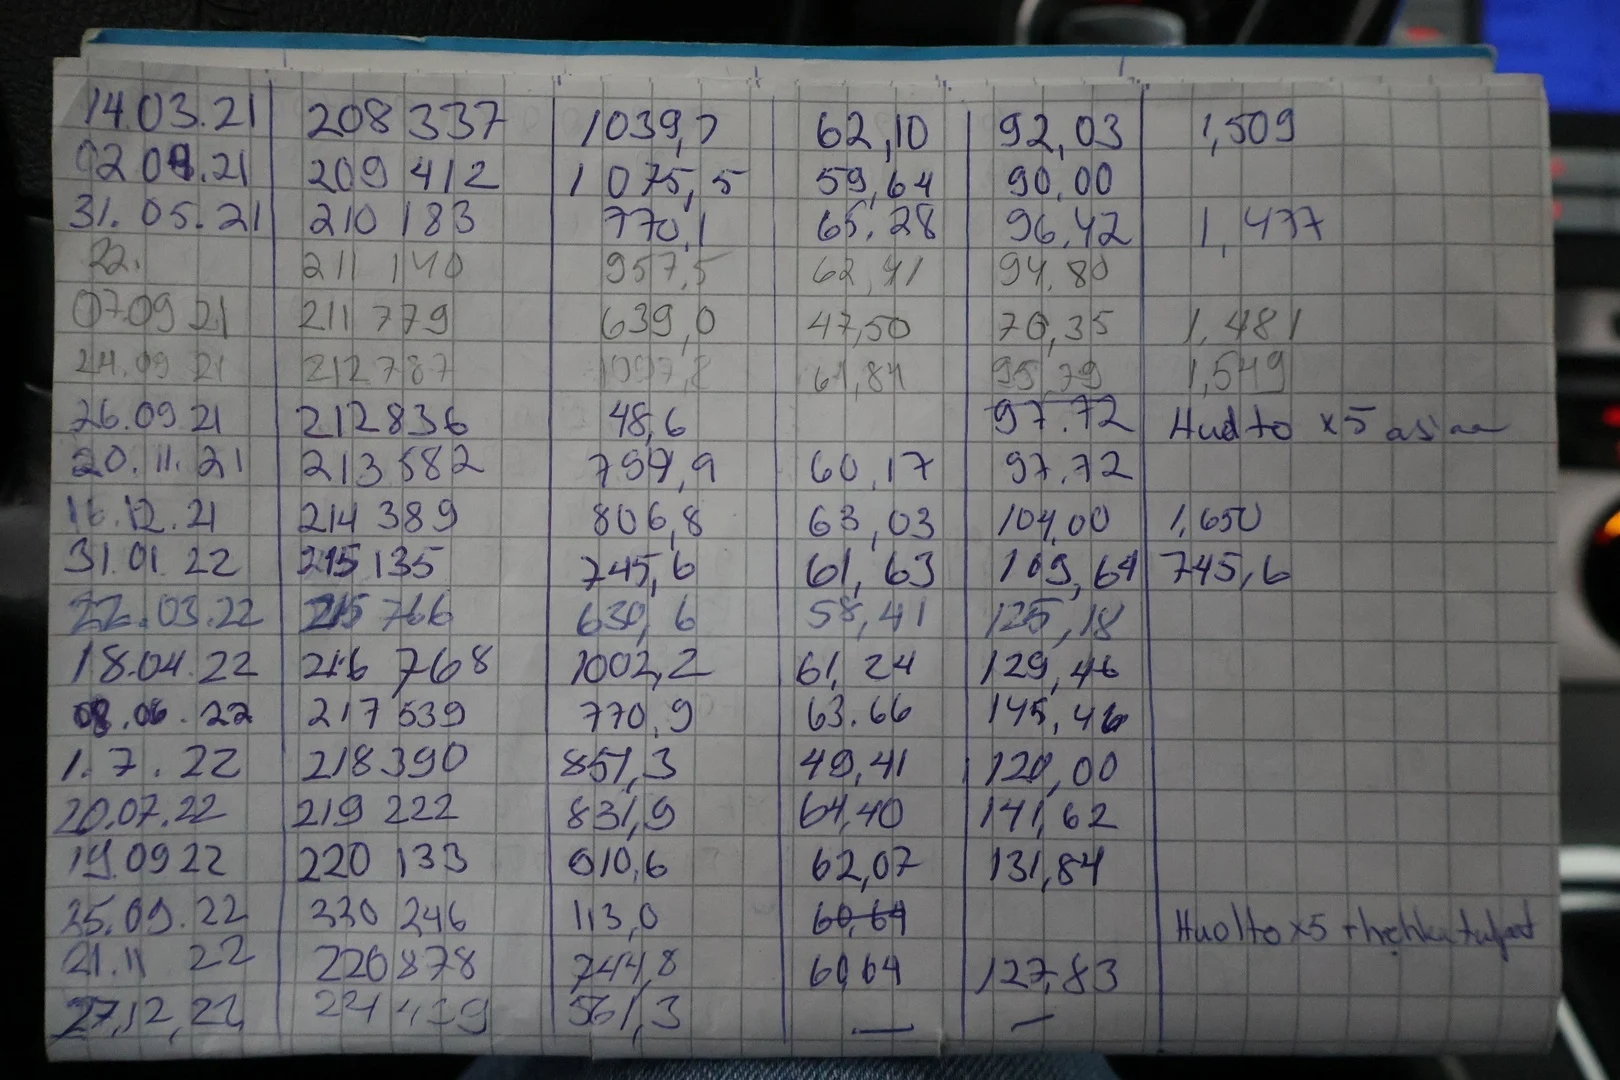 14.03.21 208 337 1039,7 62,10 92,03 1,509
02 04.21 209 412 1 075,5 59,64 90,00
31.05.21 210 183 770,1 65,28 96,42 1,477
22. 211 140 957,5 62,41 94,80
07.09 21 211 779 639,0 47,50 70,35 1,481
24.09 21 212 787 61,84 95,79 1,549
26.09 21 212 836 48,6 97.72 Huolto x5
20.11.21 213 582 794,9 60,17 97.72
16.12.21 214 389 806,8 63,03 104,00 1,650
31.01.22 215 135 745,6 61,63 109,64 745,6
22.03.22 215 766 630,6 58,41 125,18
18.04.22 216 768 1002,2 61,24 129,46
08.06.22 217 539 770,9 63.66 145,46
1.7.22 218 390 851,3 49,41 120,00
20.07.22 219 222 831,9 64,40 141,62
19.09 22 220 133 910,6 62,07 131,84
25.09.22 220 246 113,0 60,64 Huolto x5
21.11 22 220 878 744,8 60,64 127,83
27,12,22 561,3 — —